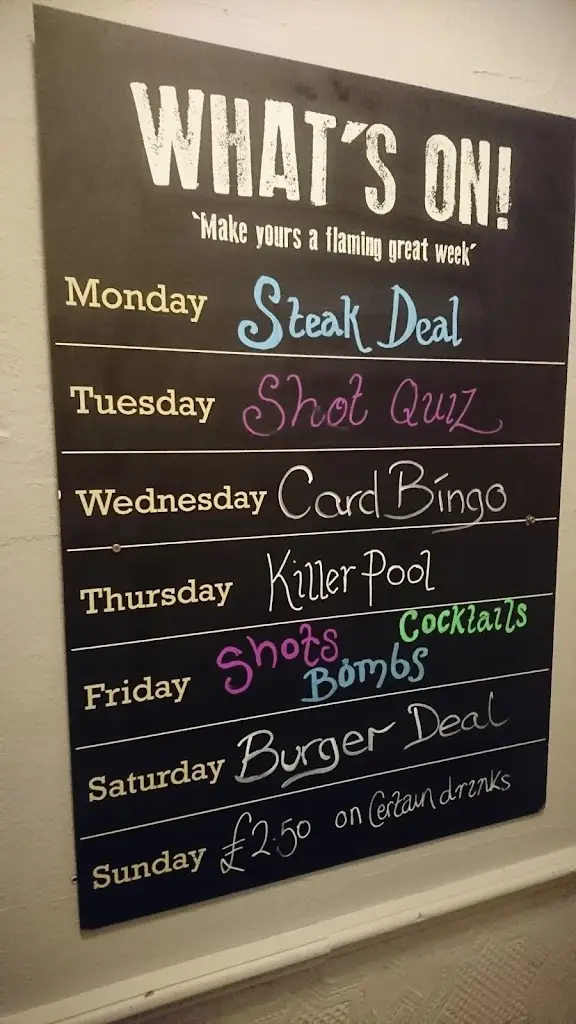 WHAT'S ON!
"Make yours a flaming great week"
Monday Steak Deal
Tuesday Shot Quiz
Wednesday Card Bingo
Thursday Killer Pool
Friday Shots Bombs Cocktails
Saturday Burger Deal
Sunday £2.50 on Certain drinks